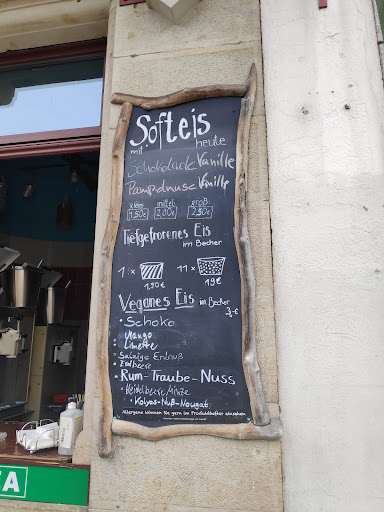 Softeis
mit heute
Schokolade Vanille
Pampelmuse Vanille
klein mittel groß
1,50€ 2,00€ 2,50€
Tiefgefrorenes Eis
im Becher
1x 11x
1,90€ 19€
Veganes Eis im Becher
3,-€
• Schoko
• Mango
• Limette
• Salzige Erdnuß
• Erdbeere
• Rum-Traube-Nuss
• Heidelbeere Minze
• Kokos-Nuß-Nougat
Allergene können Sie gern im Produkthefter einsehen